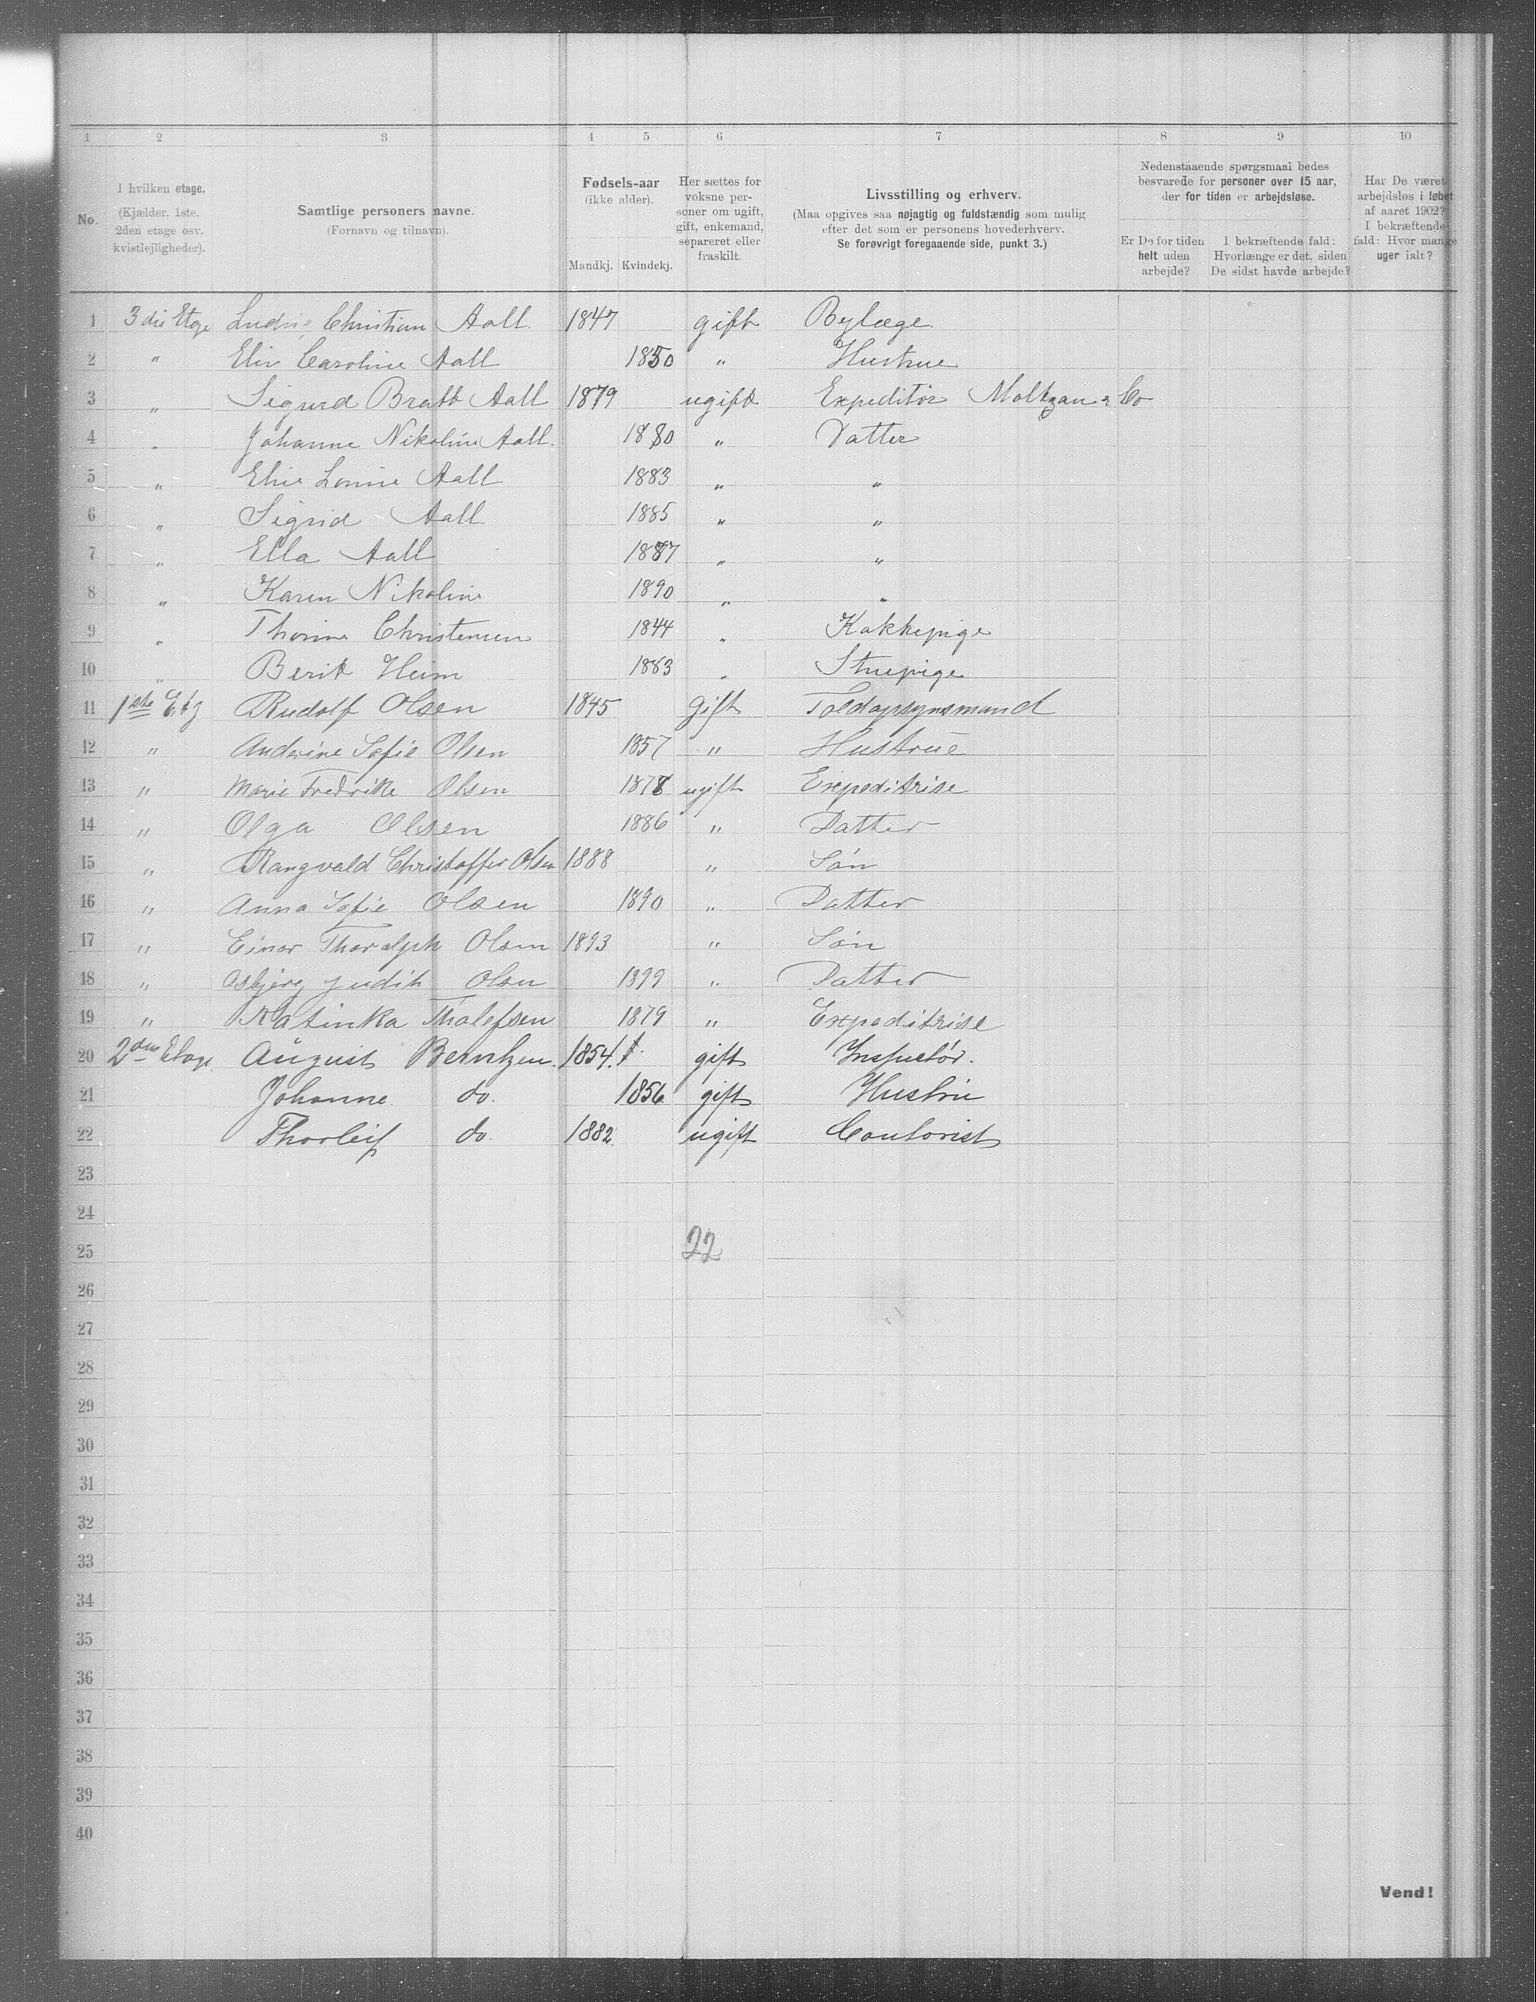 1 2 3 4 5 6 7 8 9 10
No.
I hvilken etage.
(Kjælder, 1ste.
2den etage osv.
kvistlejligheder).
Samtlige personers navne.
(Fornavn og tilnavn).
Fødsels-aar
(ikke alder).
Mandkj. Kvindekj.
Her sættes for
voksne per-
soner om ugift,
gift, enkemand,
separeret eller
fraskilt.
Livsstilling og erhverv.
(Maa opgives saa nøjagtig og fuldstændig som mulig
efter det som er personens hovederhverv.
Se forøvrigt foregaaende side, punkt 3.)
Nedenstaaende spørgsmaal bedes
besvarede for personer over 15 aar,
der for tiden er arbejdsløse.
Er De for tiden
helt uden
arbejde?
I bekræftende fald:
Hvorlænge er det, siden
De sidst havde arbejde?
Har De været
arbejdsløs i løbet
af aaret 1902?
I bekræftende
fald: Hvor mange
uger ialt?
1 3die Etage Christian Aall 1847 gift Bylæge
2 " Caroline Aall 1850 " Hustrue
3 " Sigurd Bratt Aall 1879 ugift Expeditør Moltzau & Co
4 " Johanne Nikoline Aall. 1880 " Datter
5 " Elise Louise Aall 1883 " "
6 " Sigrid Aall 1885 " "
7 " Ella Aall 1887 " "
8 " Karen Nikoline 1890 " "
9 " Thorine Christensen 1844 " Kokkepige
10 " Berit Heim 1883 " Stuepige
11 1ste Etg Rudolf Olsen 1845 Gift Toldopsynsmand
12 " Anderine Sofie Olsen 1857 " Hustrue
13 " Marie Fredrike Olsen 1878 ugift Expeditrise
14 " Olga Olsen 1886 " Datter
15 " Rangvald Christoffer Olsen 1888 " Søn
16 " Anna Sofie Olsen 1890 " Datter
17 " Einar Thoralph Olsen 1893 " Søn
18 " Asbjørg Judith Olsen 1899 " Datter
19 " Katinka Tholefsen 1879 " Expeditrise
20 2den Etage August Berntzen. 1854. gift Inspectør.
21 Johanne do. 1856 gift Hustru
22 Thorleif do. 1882. ugift Contorist
23
24
25 22
26
27
28
29
30
31
32
33
34
35
36
37
38
39
40
Vend!